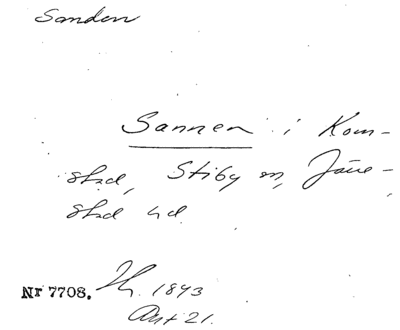 Sanden
Sannen i Kom-
stad, Stiby sn, Järe-
stad hd.
Nr 7708. 1843
Akt 21.